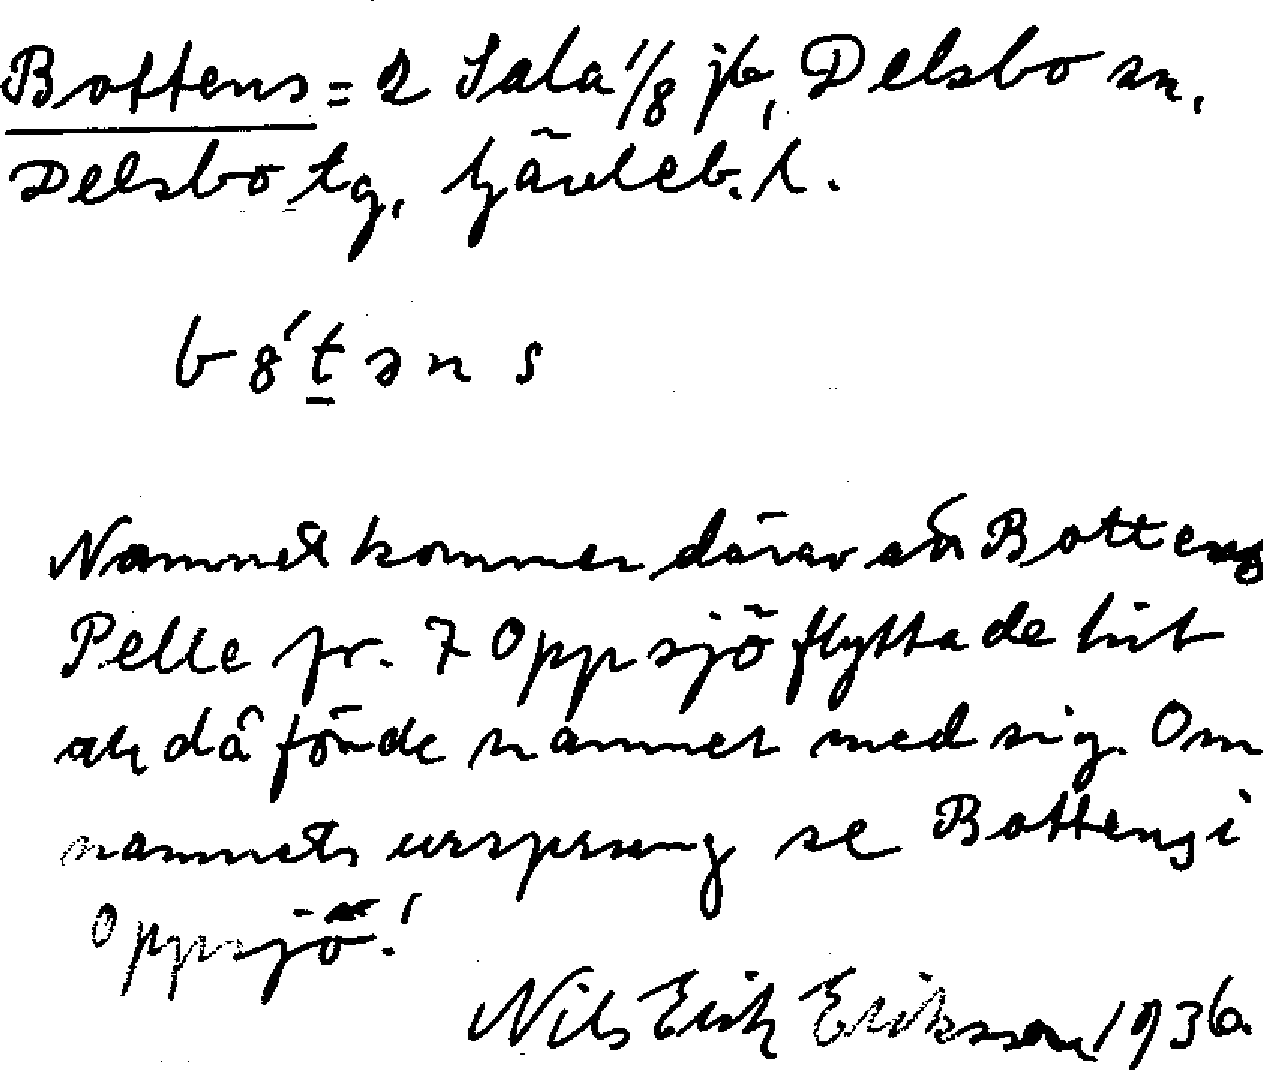 Bottens = 2 Sala 1/8 jb, Delsbo sn,
Delsbo tg, Gävleb. l.
Namnet kommer därav att Bottens
Pelle fr. 7 Oppsjö flyttade hit
och då förde namnet med sig. Om
namnets ursprung se Bottens i
Oppsjö!
Nils Erik Eriksson 1936.